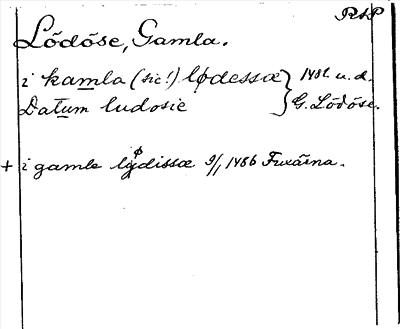 RAP
Lödöse, Gamla.
i kamla (sic!) lødessæ } 1481 u. d.
Datum ludosie } G. Lödöse.
+ i gamle lødissæ 9/1 1486 Fuxärna.